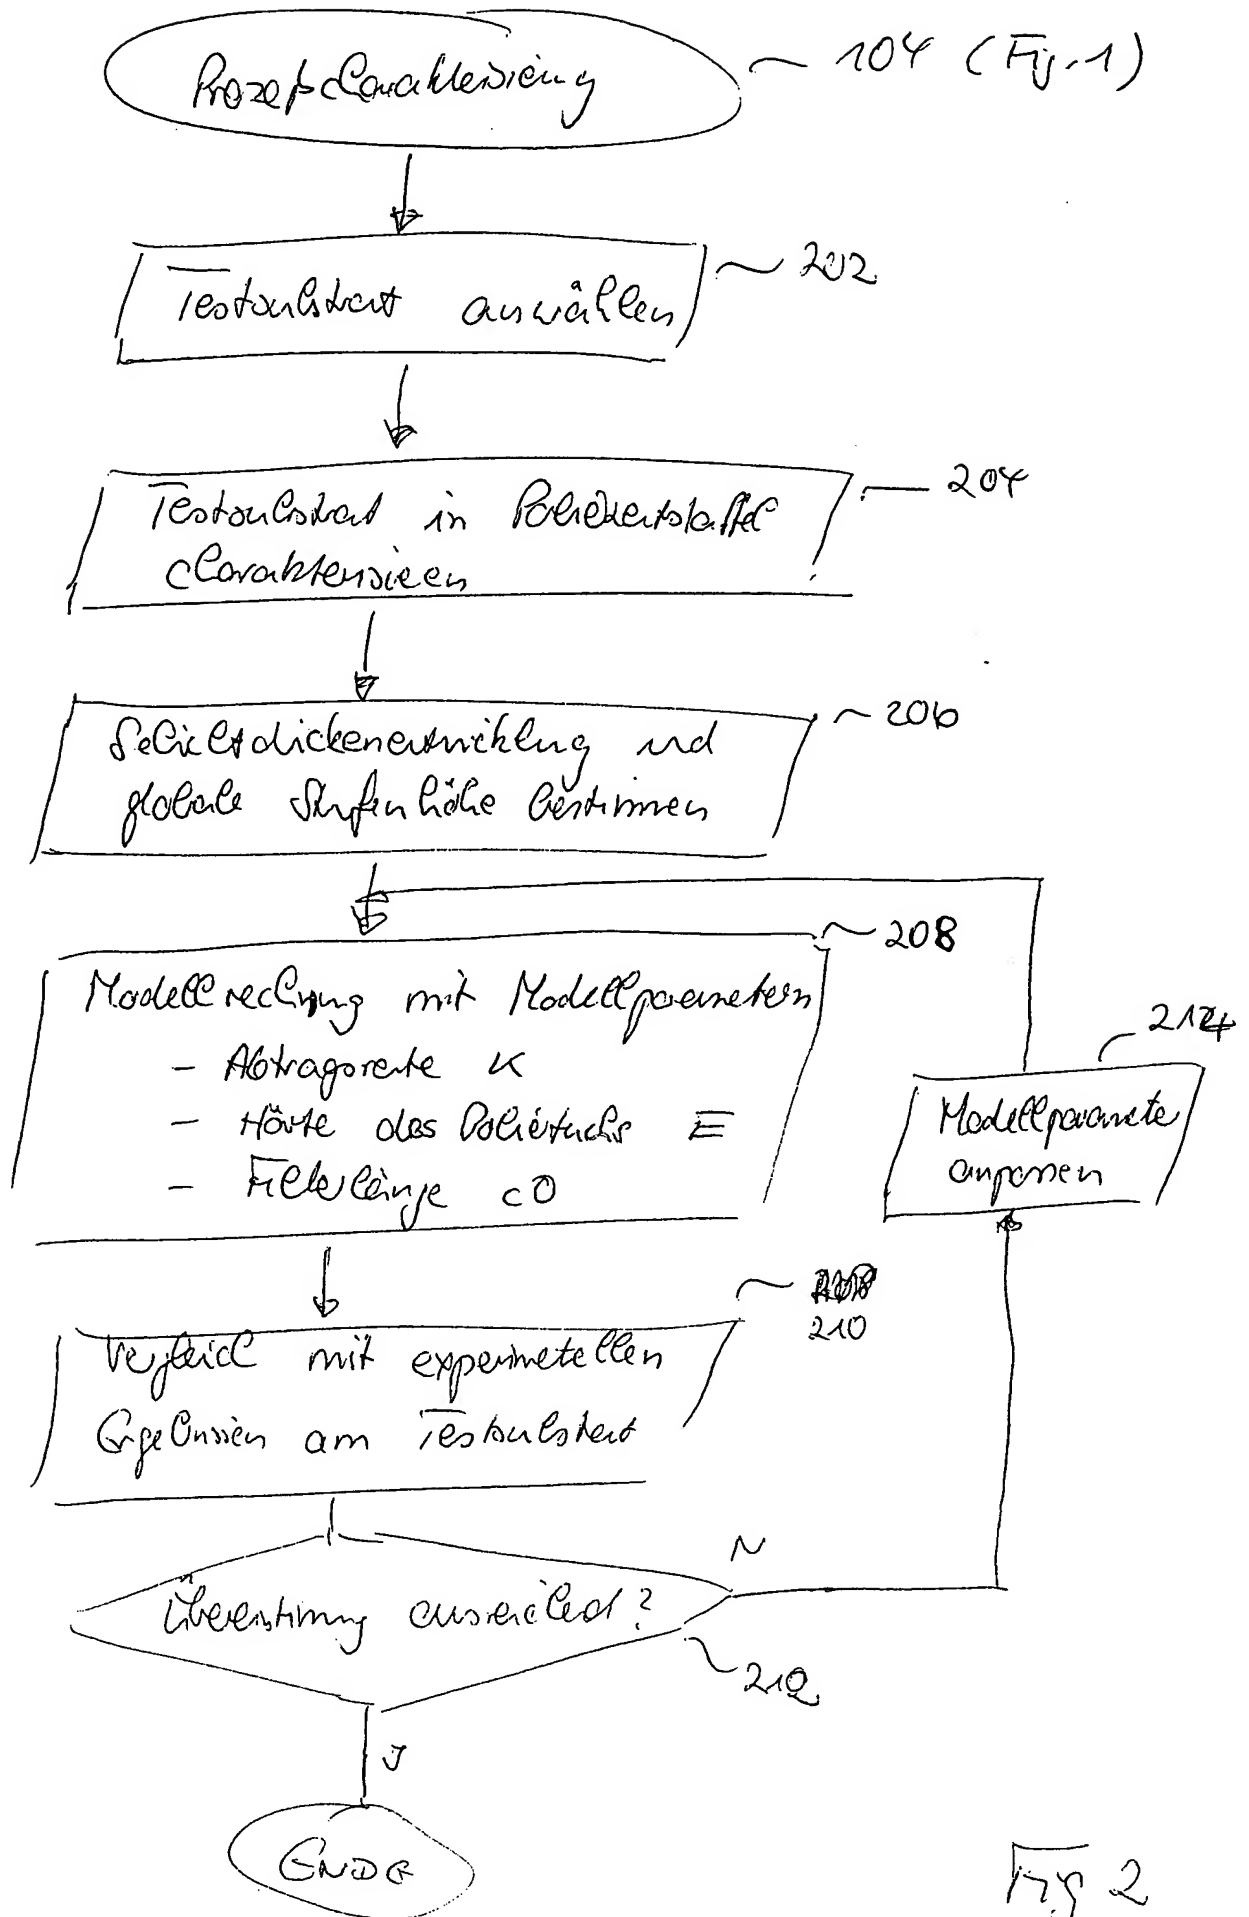 Prozeßcharakterisierung
104 (Fig. 1)
Testsubstrat auswählen
202
Testsubstrat in Polierzeitstaffel
charakterisieren
204
Schichtdickenentwicklung und
globale Stufenhöhe bestimmen
206
Modellrechnung mit Modellparametern
- Abtragsrate K
- Härte des Poliertuchs E
- Filterlänge c0
208
Modellparameter
anpassen
214
Vergleich mit experimentellen
Ergebnissen am Testsubstrat
210
Übereinstimmung ausreichend?
N
212
J
ENDE
Fig 2